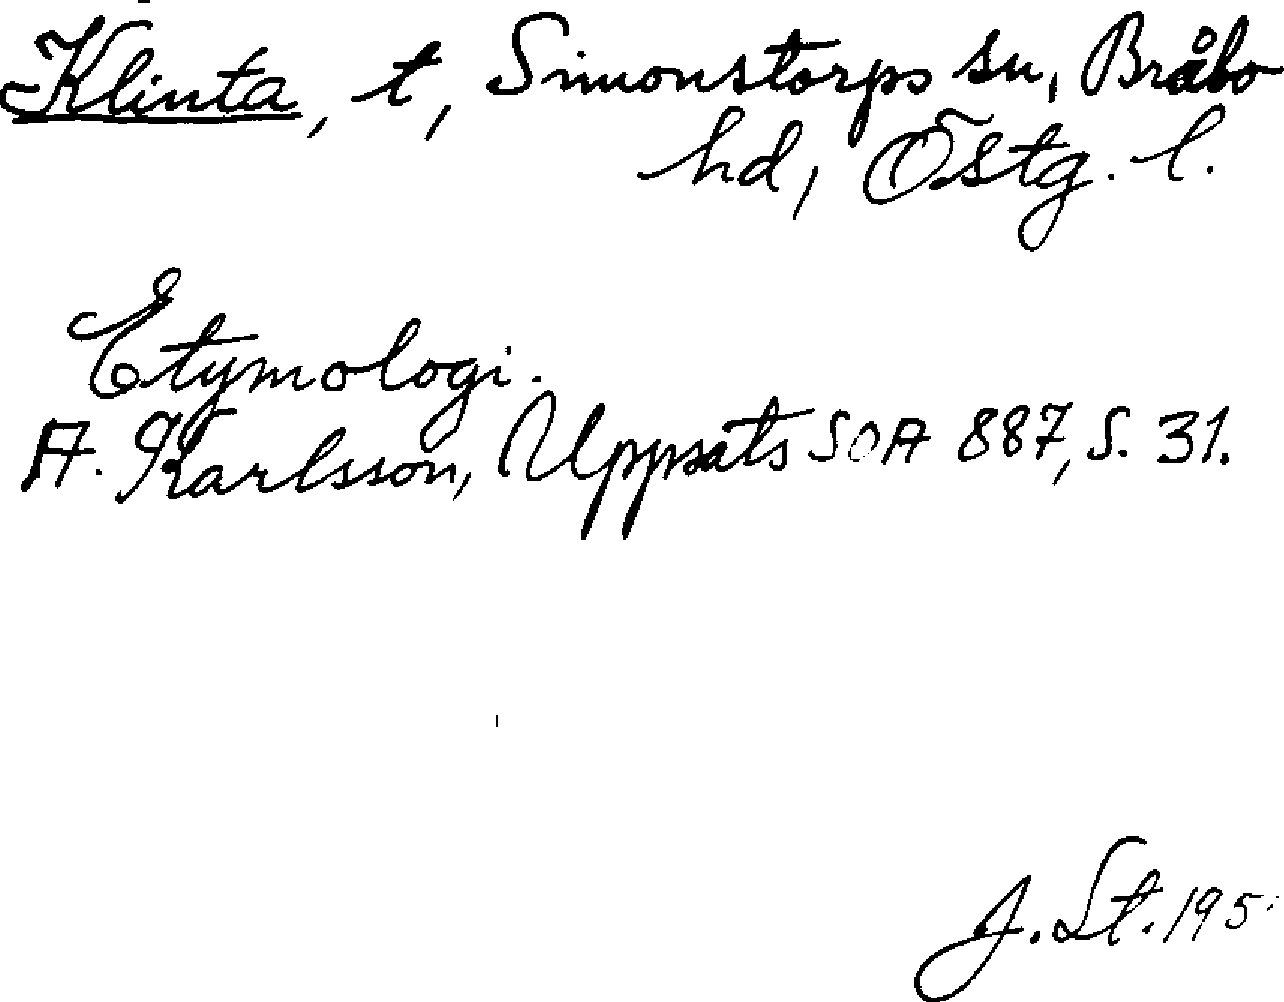 Klinta, t, Simonstorps sn, Bråbo
hd, Östg. l.
Etymologi.
A. Karlsson, Uppsats SOA 887, S. 31.
J. St. 195